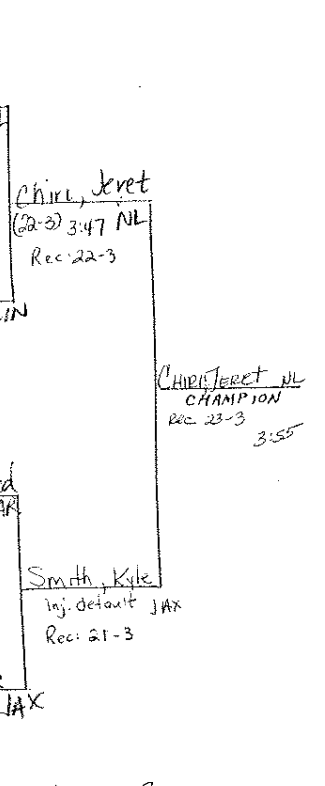 Chiri, Jeret
(22-3) 3:47 NL
Rec: 22-3
IN
CHIRI, JERET NL
CHAMPION
Rec 23-3
3:55
d
AR
Smith, Kyle
Inj. default JAX
Rec: 21-3
JAX